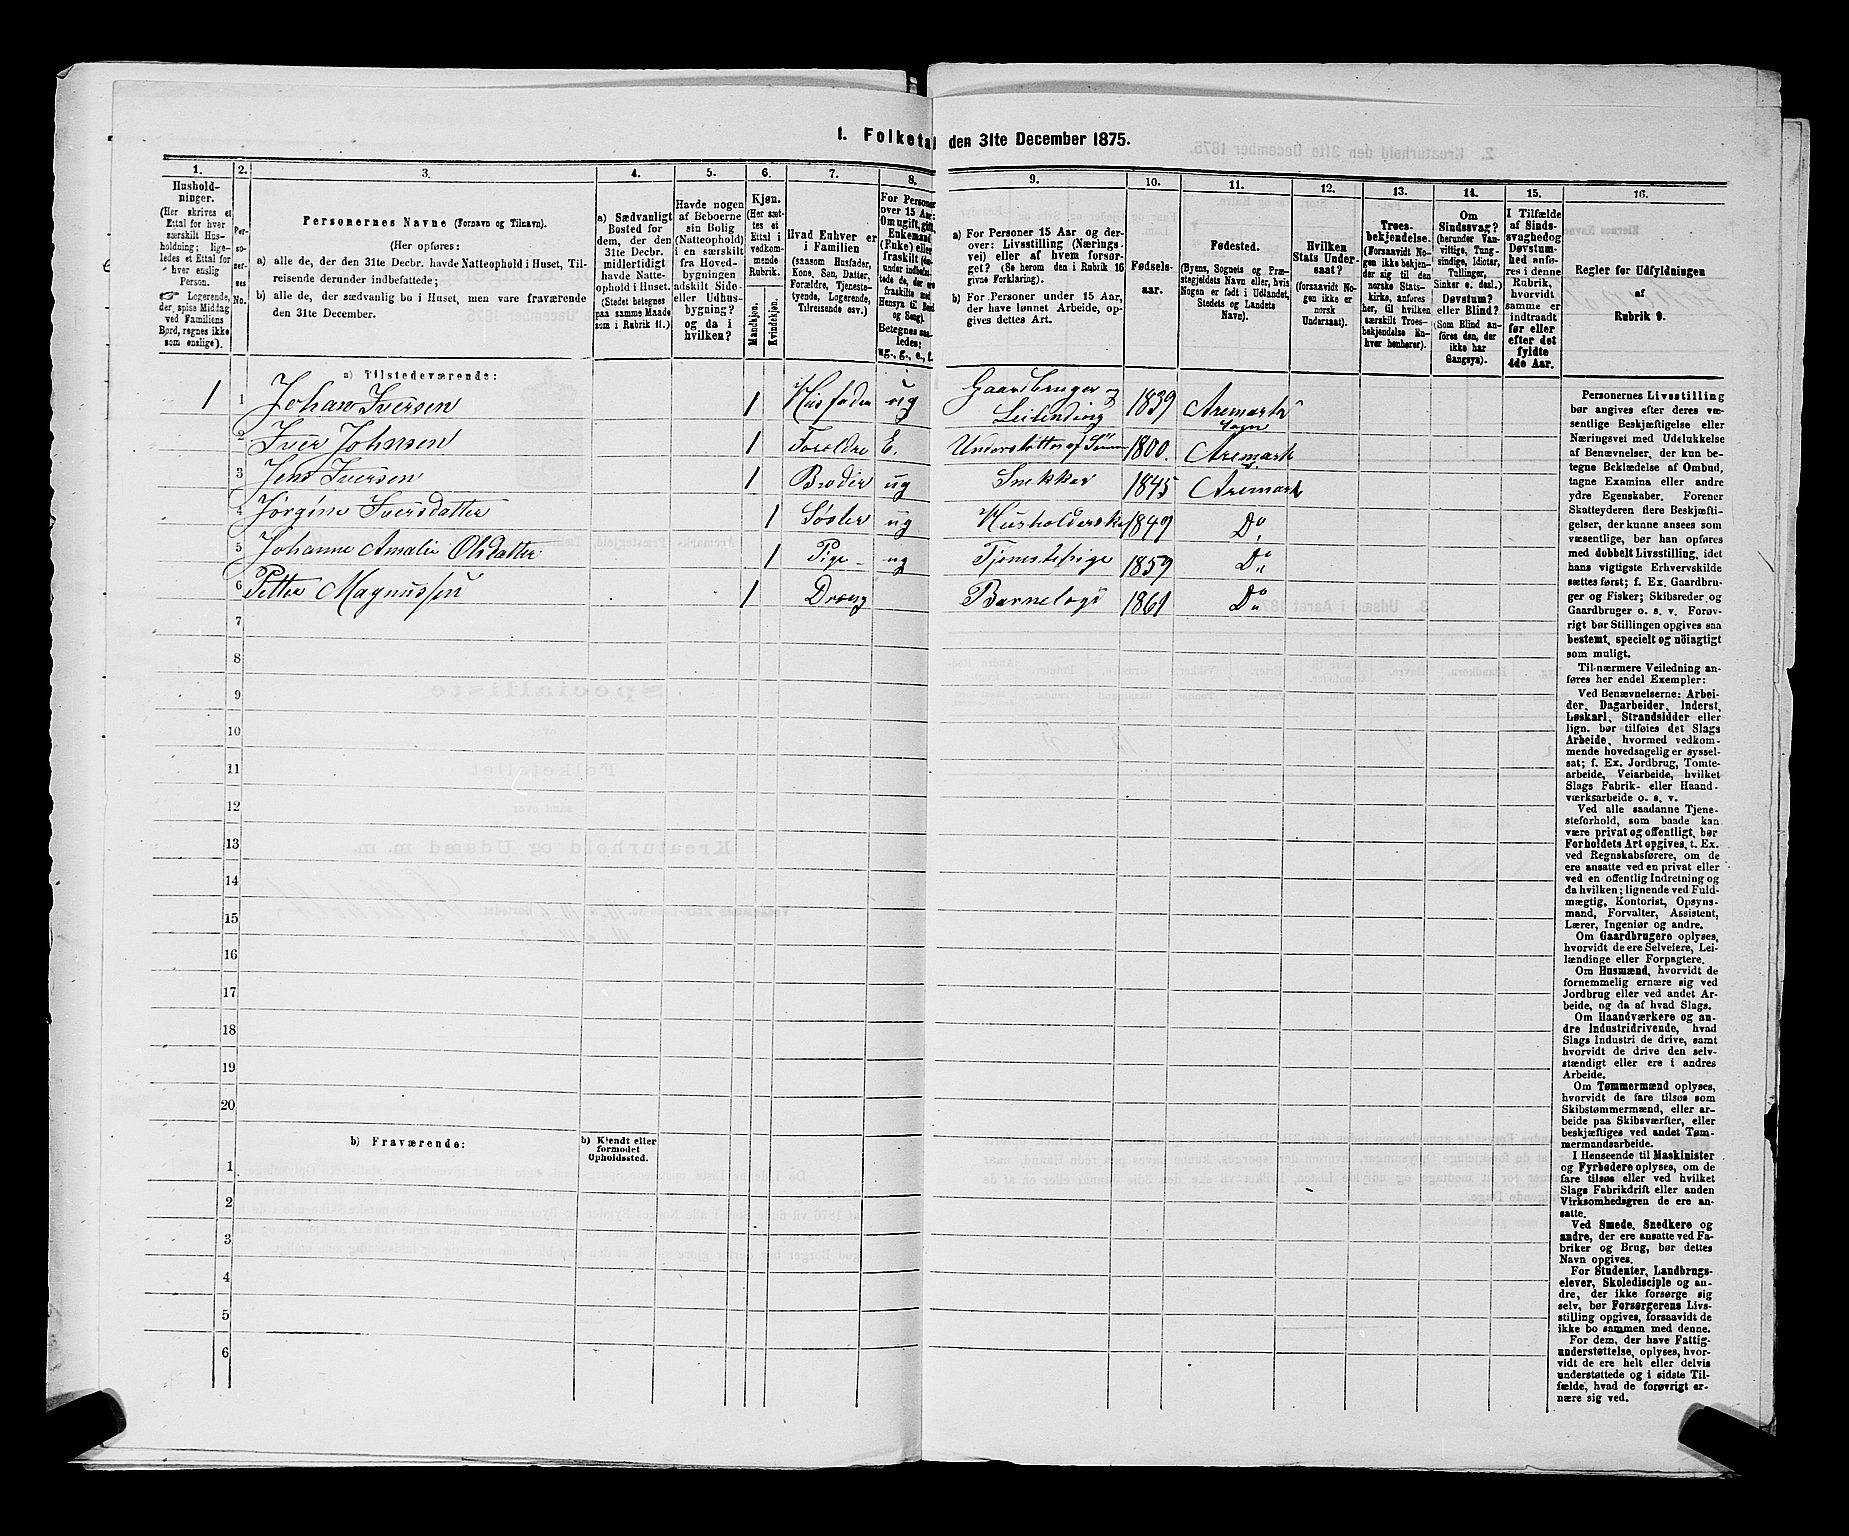 1. Folketal den 31te December 1875.
1.
2.
3.
4.
5.
6.
7.
8.
9.
10.
11.
12.
13.
14.
15.
16.
Hushold-
ninger.
(Her skrives et
Ettal for hver
særskilt Hus-
holdning; lige-
ledes et Ettal for
hver enslig
Person.
Logerende,
der spise Middag
ved Familiens
Bord, regnes ikke
som enslige).
Per-
so-
ner-
nes
No.
Personernes Navne (Fornavn og Tilnavn).
(Her opføres:
a) alle de, der den 31te Decbr. havde Natteophold i Huset, Til-
reisende derunder indbefattede;
b) alle de, der sædvanlig bo i Huset, men vare fraværende
den 31te December.
a) Sædvanligt
Bosted for
dem, der den
31te Decbr.
midlertidigt
havde Natte-
ophold i Huset.
(Stedet betegnes
paa samme Maade
som i Rubrik 11.)
Havde nogen
af Beboerne
sin Bolig
(Natteophold)
i en særskilt
fra Hoved-
bygningen
adskilt Side-
eller Udhus-
bygning?
og da i
hvilken?
Kjøn.
(Her sæt-
tes et
Ettal i
vedkom-
mende
Rubrik.
Mandkjøn.
Kvindekjøn.
Hvad Enhver er
i Familien
(saasom Husfader,
Kone, Søn, Datter,
Forældre, Tjeneste-
tyende, Logerende,
Tilreisende osv.)
For Personer
over 15 Aar:
Om ugift, gift,
Enkemand
(Enke) eller
fraskilt
Betegnes saa-
ledes:
ug., g., e., f.
a) For Personer 15 Aar og der-
over: Livsstilling (Nærings-
vei) eller af hvem forsør-
get? (Se herom den i Rubrik 16
givne Forklaring).
b) For Personer under 15 Aar,
der have lønnet Arbeide, op-
gives dettes Art.
Fødsels-
aar.
Fødested.
(Byens, Sognets og Præ-
stegjeldets Navn eller, hvis
Nogen er født i Udlandet,
Stedets og Landets
Navn).
Hvilken
Stats Under-
saat?
(forsaavidt No-
gen ikke er
norsk
Undersaat).
Troes-
bekjendelse.
(Forsaavidt No-
gen ikke bekjen-
der sig til den
norske Stats-
kirke, anføres
her, til hvilken
særskilt Troes-
bekjendelse En-
hver henhører).
Om
Sindssvag?
(herunder Van-
vittige, Tung-
sindige, Idioter,
Tullinger,
Sinker o. desl.)
Døvstum?
eller Blind?
(Som Blind an-
føres den, der
ikke har
Gangsyn).
I Tilfælde
af Sinds-
svaghed og
Døvstum-
hed anfø-
res i denne
Rubrik,
hvorvidt
samme er
indtraadt
før eller
efter det
fyldte
4de Aar.
Regler før Udfyldningen
af
Rubrik 9.
a) Tilstedeværende:
1 1 Johan Iversen 1 Husfader ug Gaardbruger og Leilending 1839 Aremark Sogn
2 Iver Johnsen 1 Foreldre E. Understøttes af Sønnen 1800. Aremark
3 Jens Iversen 1 Broder ug Snekker 1845 Aremark
4 Jørgine Iversdatter 1 Søster ug Husholderske 1849 Do
5 Johanne Amalie Olsdatter 1 Pige ug Tjenestepige 1859 Do
6 Petter Magnussen 1 Dreng Barnelogi 1861 Do
7
8
9
10
11
12
13
14
15
16
17
18
19
20
b) Fraværende:
b) Kjendt eller
formodet
Opholdssted.
1
2
3
4
5
6
Personernes Livsstilling
bør angives efter deres væ-
sentlige Beskjæftigelse eller
Næringsvei med Udelukkelse
af Benævnelser, der kun be-
tegne Beklædelse af Ombud,
tagne Examina eller andre
ydre Egenskaber. Forener
Skatteyderen flere Beskjæfti-
gelser, der kunne ansees som
væsentlige, bør han opføres
med dobbelt Livsstilling, idet
hans vigtigste Erhvervskilde
sættes først; f. Ex. Gaardbru-
ger og Fisker; Skibsreder og
Gaardbruger o. s. v. Forøv-
rigt bør Stillingen opgives saa
bestemt, specielt og nøiagtigt
som muligt.
Til nærmere Veiledning an-
føres her endel Exempler:
Ved Benævnelserne: Arbei-
der, Dagarbeider, Inderst,
Løskarl, Strandsidder eller
lign. bør tilføies det Slags
Arbeide, hvormed vedkom-
mende hovedsagelig er syssel-
sat; f. Ex. Jordbrug, Tomte-
arbeide, Veiarbeide, hvilket
Slags Fabrik- eller Haand-
værksarbeide o. s. v.
Ved alle saadanne Tjene-
steforhold, som baade kan
være privat og offentligt, bør
Forholdets Art opgives. t. Ex.
ved Regnskabsførere, om de
ere ansatte ved en privat eller
ved en offentlig Indretning og
da hvilken; lignende ved Fuld-
mægtig, Kontorist, Opsyns-
mand, Forvalter, Assistent,
Lærer, Ingeniør og andre.
Om Gaardbrugere oplyses,
hvorvidt de ere Selveiere, Lei-
lændinge eller Forpagtere.
Om Husmænd, hvorvidt de
fornemmelig ernære sig ved
Jordbrug eller ved andet Ar-
beide, og da af hvad Slags.
Om Haandværkere og an-
dre Industridrivende, hvad
Slags Industri de drive, samt
hvorvidt de drive den selv-
stændigt eller ere i andres
Arbeide.
Om Tømmermænd oplyses,
hvorvidt de fare tilsøs som
Skibstømmermænd, eller ar-
beide paa Skibsværfter, eller
beskjæftiges ved andet Tøm-
mermandsarbeide.
I Henseende til Maskinister
og Fyrbødere oplyses, om de
fare tilsøs eller ved hvilket
Slags Fabrikdrift eller anden
Virksomhedsgren de ere an-
satte.
Ved Smede, Snedkere og
andre, der ere ansatte ved Fa-
briker og Brug, bør dettes
Navn opgives.
For Studenter, Landbrugs-
elever, Skoledisciple og an-
dre, der ikke forsørge sig
selv, bør Forsørgerens Livs-
stilling opgives, forsaavidt de
ikke bo sammen med denne.
For dem, der have Fattig-
understøttelse, oplyses, hvor-
vidt de ere helt eller delvis
understøttede og i sidste Til-
fælde, hvad de forøvrigt er-
nære sig ved.